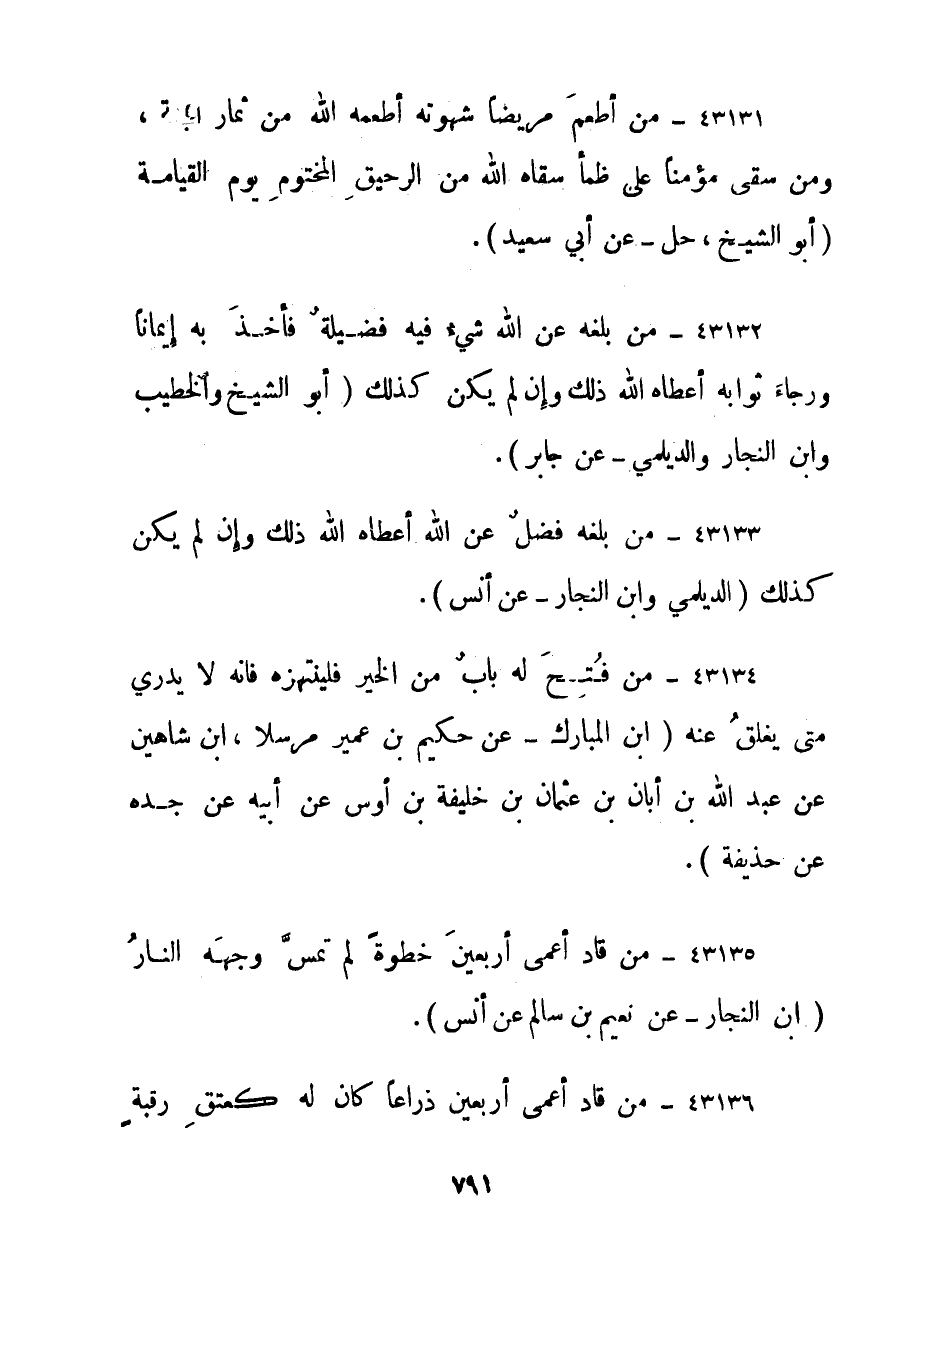 ٤٣١٣١ ـ من أطعمَ مريضاً شهوته أطعمه الله من ثمار ،
ومن سقى مؤمناً على ظمأ سقاه الله من الرحيقِ المختومِ يوم القيامـة
( أبو الشيـخ ، حل ـ عن أبي سعيد ) .
٤٣١٣٢ ـ من بلغه عن الله شيء فيه فضـيلةٌ فأخـذَ به إيماناً
ورجاءَ ثوابه أعطاه الله ذلك وإن لم يكن كذلك ( أبو الشيـخ والخطيب
وابن النجار والديلمي ـ عن جابر ) .
٤٣١٣٣ ـ من بلغه فضلٌ عن الله أعطاه الله ذلك وإن لم يكن
كذلك ( الديلمي وابن النجار ـ عن أنس ) .
٤٣١٣٤ ـ من فُتِـحَ له بابٌ من الخير فلينتهزه فانه لا يدري
متى يغلقُ عنه ( ابن المبارك ـ عن حكيم بن عمير مرسلا ، ابن شاهين
عن عبد الله بن أبان بن عثمان بن خليفة بن أوس عن أبيه عن جـده
عن حذيفة ) .
٤٣١٣٥ ـ من قاد أعمى أربعينَ خطوةً لم تمسَّ وجهَه النـارُ
( ابن النجار ـ عن نعيم بن سالم عن أنس ) .
٤٣١٣٦ ـ من قاد أعمى أربعين ذراعاً كان له كعتقِ رقبةٍ
٧٩١